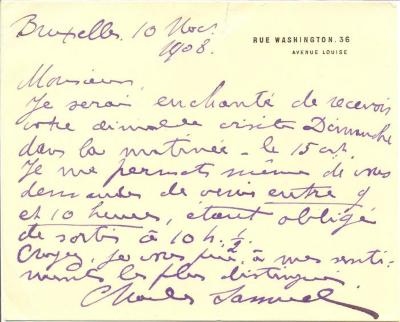 Bruxelles. 10 Nov.
1908.
RUE WASHINGTON. 36
AVENUE LOUISE
Monsieur,
Je serai enchanté de recevoir
votre aimable visite Dimanche
dans la matinée - le 15 ct.
Je me permets même de vous
demander de venir entre 9
et 10 heures, étant obligé
de sortir à 10 h. ½
Croyez, je vous prie, à mes senti-
ments les plus distingués.
Charles Samuel